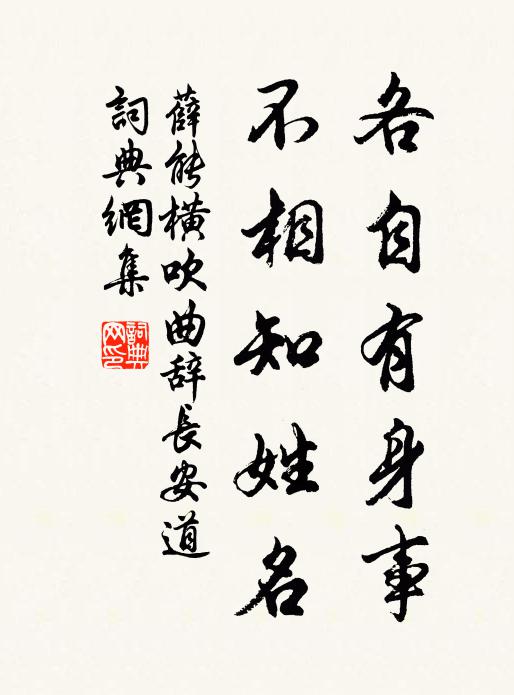 各自有身事
不相知姓名
薛能橫吹曲辞長安道
詞典網集
詞典網印